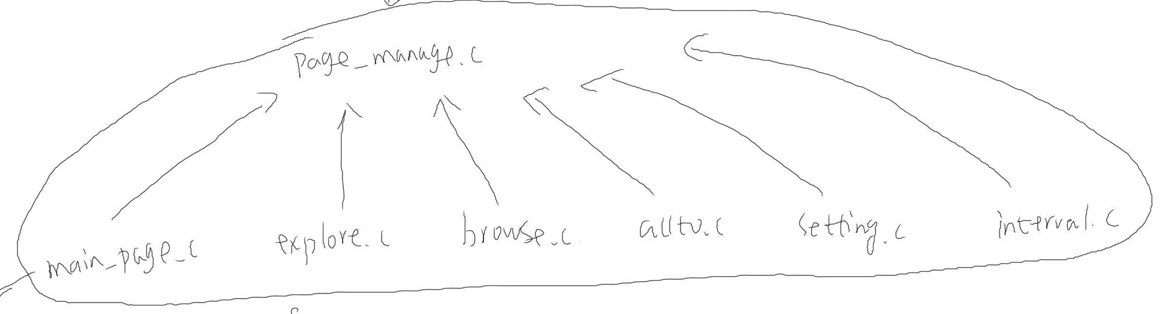 page_manage.c
main_page_c explore.c browse.c setting.c interval.c